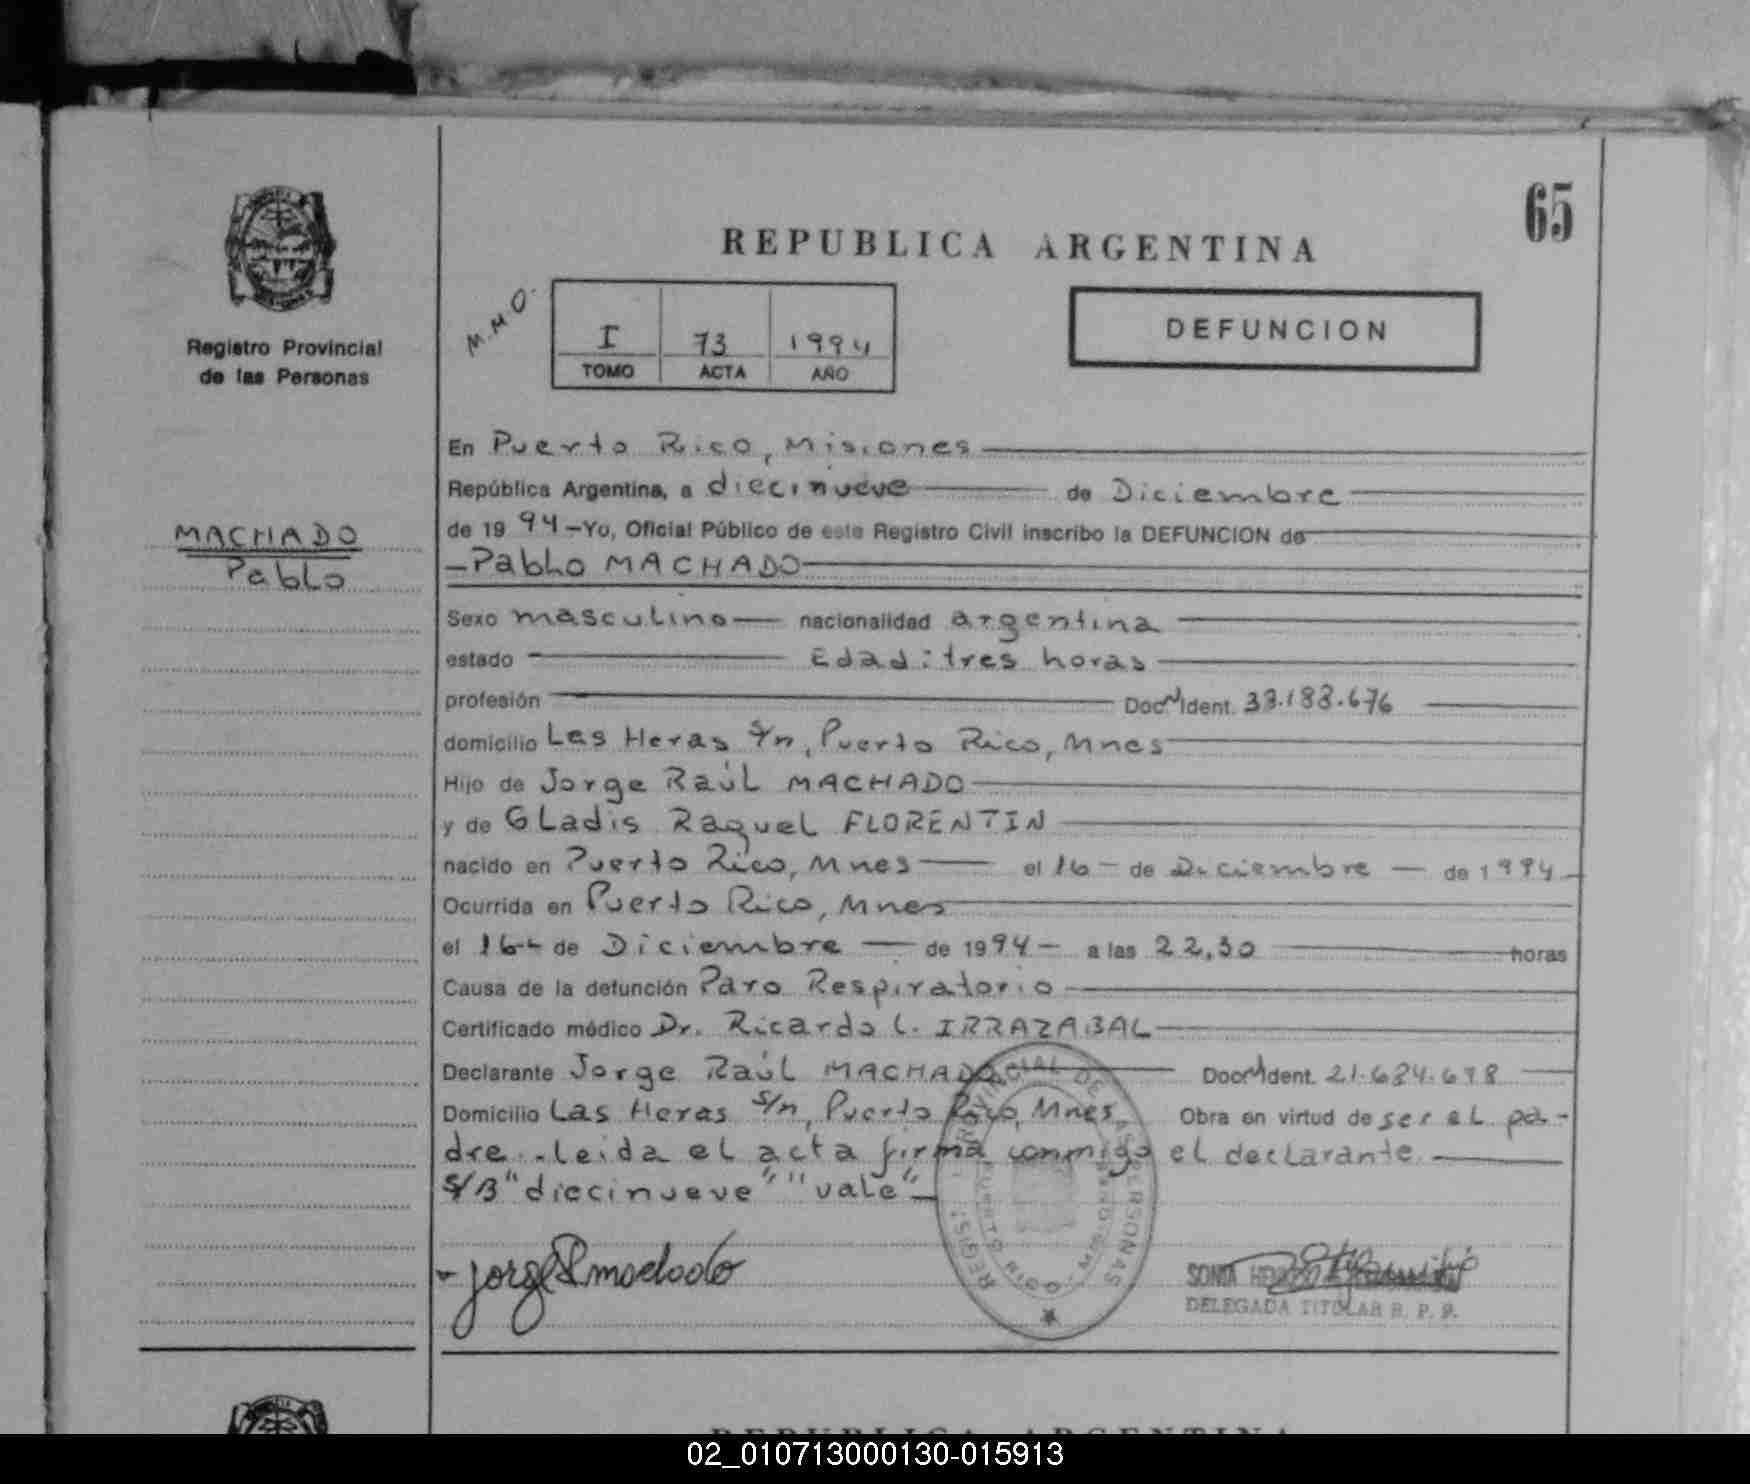 65
REPUBLICA ARGENTINA
Registro Provincial
de las Personas
M.M.O.
I 73 1994
TOMO ACTA AÑO
DEFUNCION
MACHADO
Pablo
En Puerto Rico, Misiones
República Argentina, a diecinueve de Diciembre
de 1994-Yo, Oficial Público de este Registro Civil inscribo la DEFUNCION de
-Pablo MACHADO
Sexo masculino nacionalidad argentina
estado Edad: tres horas
profesión Doc. Ident. 38.188.676
domicilio Las Heras s/n, Puerto Rico, Mnes
Hijo de Jorge Raúl MACHADO
y de Gladis Raquel FLORENTIN
nacido en Puerto Rico, Mnes el 16 - de Diciembre - de 1994
Ocurrida en Puerto Rico, Mnes
el 16- de Diciembre - de 1994 - a las 22,30 horas
Causa de la defunción Paro Respiratorio
Certificado médico Dr. Ricardo L. IRRAZABAL
Declarante Jorge Raúl MACHADO Doc. Ident. 21.684.698
Domicilio Las Heras s/n, Puerto Rico, Mnes Obra en virtud de ser el pa-
dre.-leida el acta firma conmigo el declarante
S/B "diecinueve" "vale"
Jorge R machado
REGIST. PROVINCIAL DE LAS PERSONAS
PUERTO RICO - MISIONES
SONIA
DELEGADA TITULAR R. P. P.
REPUBLICA ARGENTINA
02_010713000130-015913